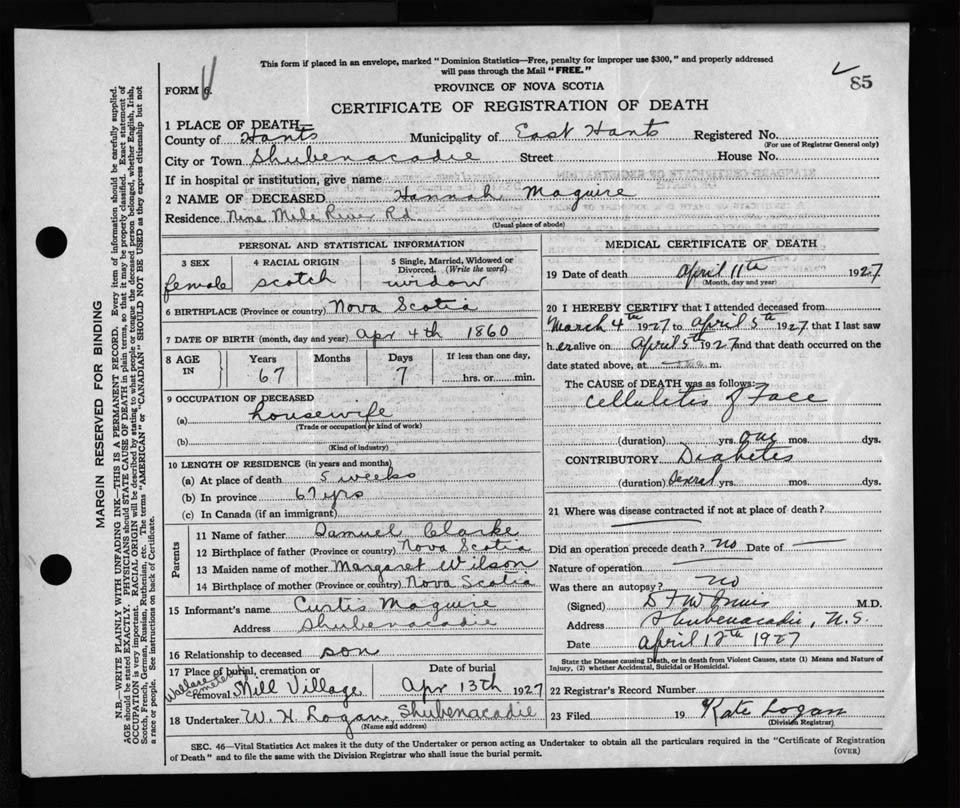 This form if placed in an envelope, marked "Dominion Statistics—Free, penalty for improper use $300," and properly addressed
will pass through the Mail "FREE."
85
FORM 6.
PROVINCE OF NOVA SCOTIA
CERTIFICATE OF REGISTRATION OF DEATH
MARGIN RESERVED FOR BINDING
N.B.—WRITE PLAINLY WITH UNFADING INK—THIS IS A PERMANENT RECORD. Every item of information should be carefully supplied.
AGE should be stated EXACTLY. PHYSICIANS should STATE CAUSE OF DEATH in plain terms, so that it may be properly classified. Exact statement of
OCCUPATION is very important. RACIAL ORIGIN will be described by stating to what people or tongue the deceased person belonged, whether English, Irish,
Scotch, French, German, Russian, Ruthenian, etc. The terms "AMERICAN" or "CANADIAN" SHOULD NOT BE USED as they express citizenship but not
a race or people. See instructions on back of Certificate.
1 PLACE OF DEATH—
County of Hants Municipality of East Hants Registered No.
(For use of Registrar General only)
City or Town Shubenacadie Street House No.
If in hospital or institution, give name
2 NAME OF DECEASED Hannah Maguire
Residence Nine Mile River Rd
(Usual place of abode)
PERSONAL AND STATISTICAL INFORMATION
3 SEX 4 RACIAL ORIGIN 5 Single, Married, Widowed or
Divorced. (Write the word)
female scotch widow
6 BIRTHPLACE (Province or country) Nova Scotia
7 DATE OF BIRTH (month, day and year) Apr 4th 1860
8 AGE IN Years Months Days If less than one day,
67 7 hrs. or min.
9 OCCUPATION OF DECEASED
(a) housewife
(Trade or occupation or kind of work)
(b)
(Kind of industry)
10 LENGTH OF RESIDENCE (in years and months)
(a) At place of death 5 weeks
(b) In province 67 yrs
(c) In Canada (if an immigrant)
Parents
11 Name of father Samuel Clarke
12 Birthplace of father (Province or country) Nova Scotia
13 Maiden name of mother Margaret Wilson
14 Birthplace of mother (Province or country) Nova Scotia
15 Informant's name Curtis Maguire
Address Shubenacadie
16 Relationship to deceased son
17 Place of burial, cremation or Date of burial
Wallace Cemetery
removal Mill Village Apr 13th 1927
18 Undertaker W. H. Logan, Shubenacadie
(Name and address)
MEDICAL CERTIFICATE OF DEATH
19 Date of death April 11th 1927
(Month, day and year)
20 I HEREBY CERTIFY that I attended deceased from
March 4th 1927 to April 5th 1927 that I last saw
her alive on April 5th 1927 and that death occurred on the
date stated above, at m.
The CAUSE of DEATH was as follows:
Cellulitis of Face
(duration) yrs. one mos. dys.
CONTRIBUTORY Diabetes
(duration) Several yrs. mos. dys.
21 Where was disease contracted if not at place of death?
Did an operation precede death? no Date of —
Nature of operation —
Was there an autopsy? no
(Signed) M.D.
Address Shubenacadie, N.S.
Date April 12th 1927
State the Disease causing Death, or in death from Violent Causes, state (1) Means and Nature of
Injury, (2) whether Accidental, Suicidal or Homicidal.
22 Registrar's Record Number
23 Filed 19 Kate Logan
(Division Registrar)
SEC. 46—Vital Statistics Act makes it the duty of the Undertaker or person acting as Undertaker to obtain all the particulars required in the "Certificate of Registration
of Death" and to file the same with the Division Registrar who shall issue the burial permit.
(OVER)